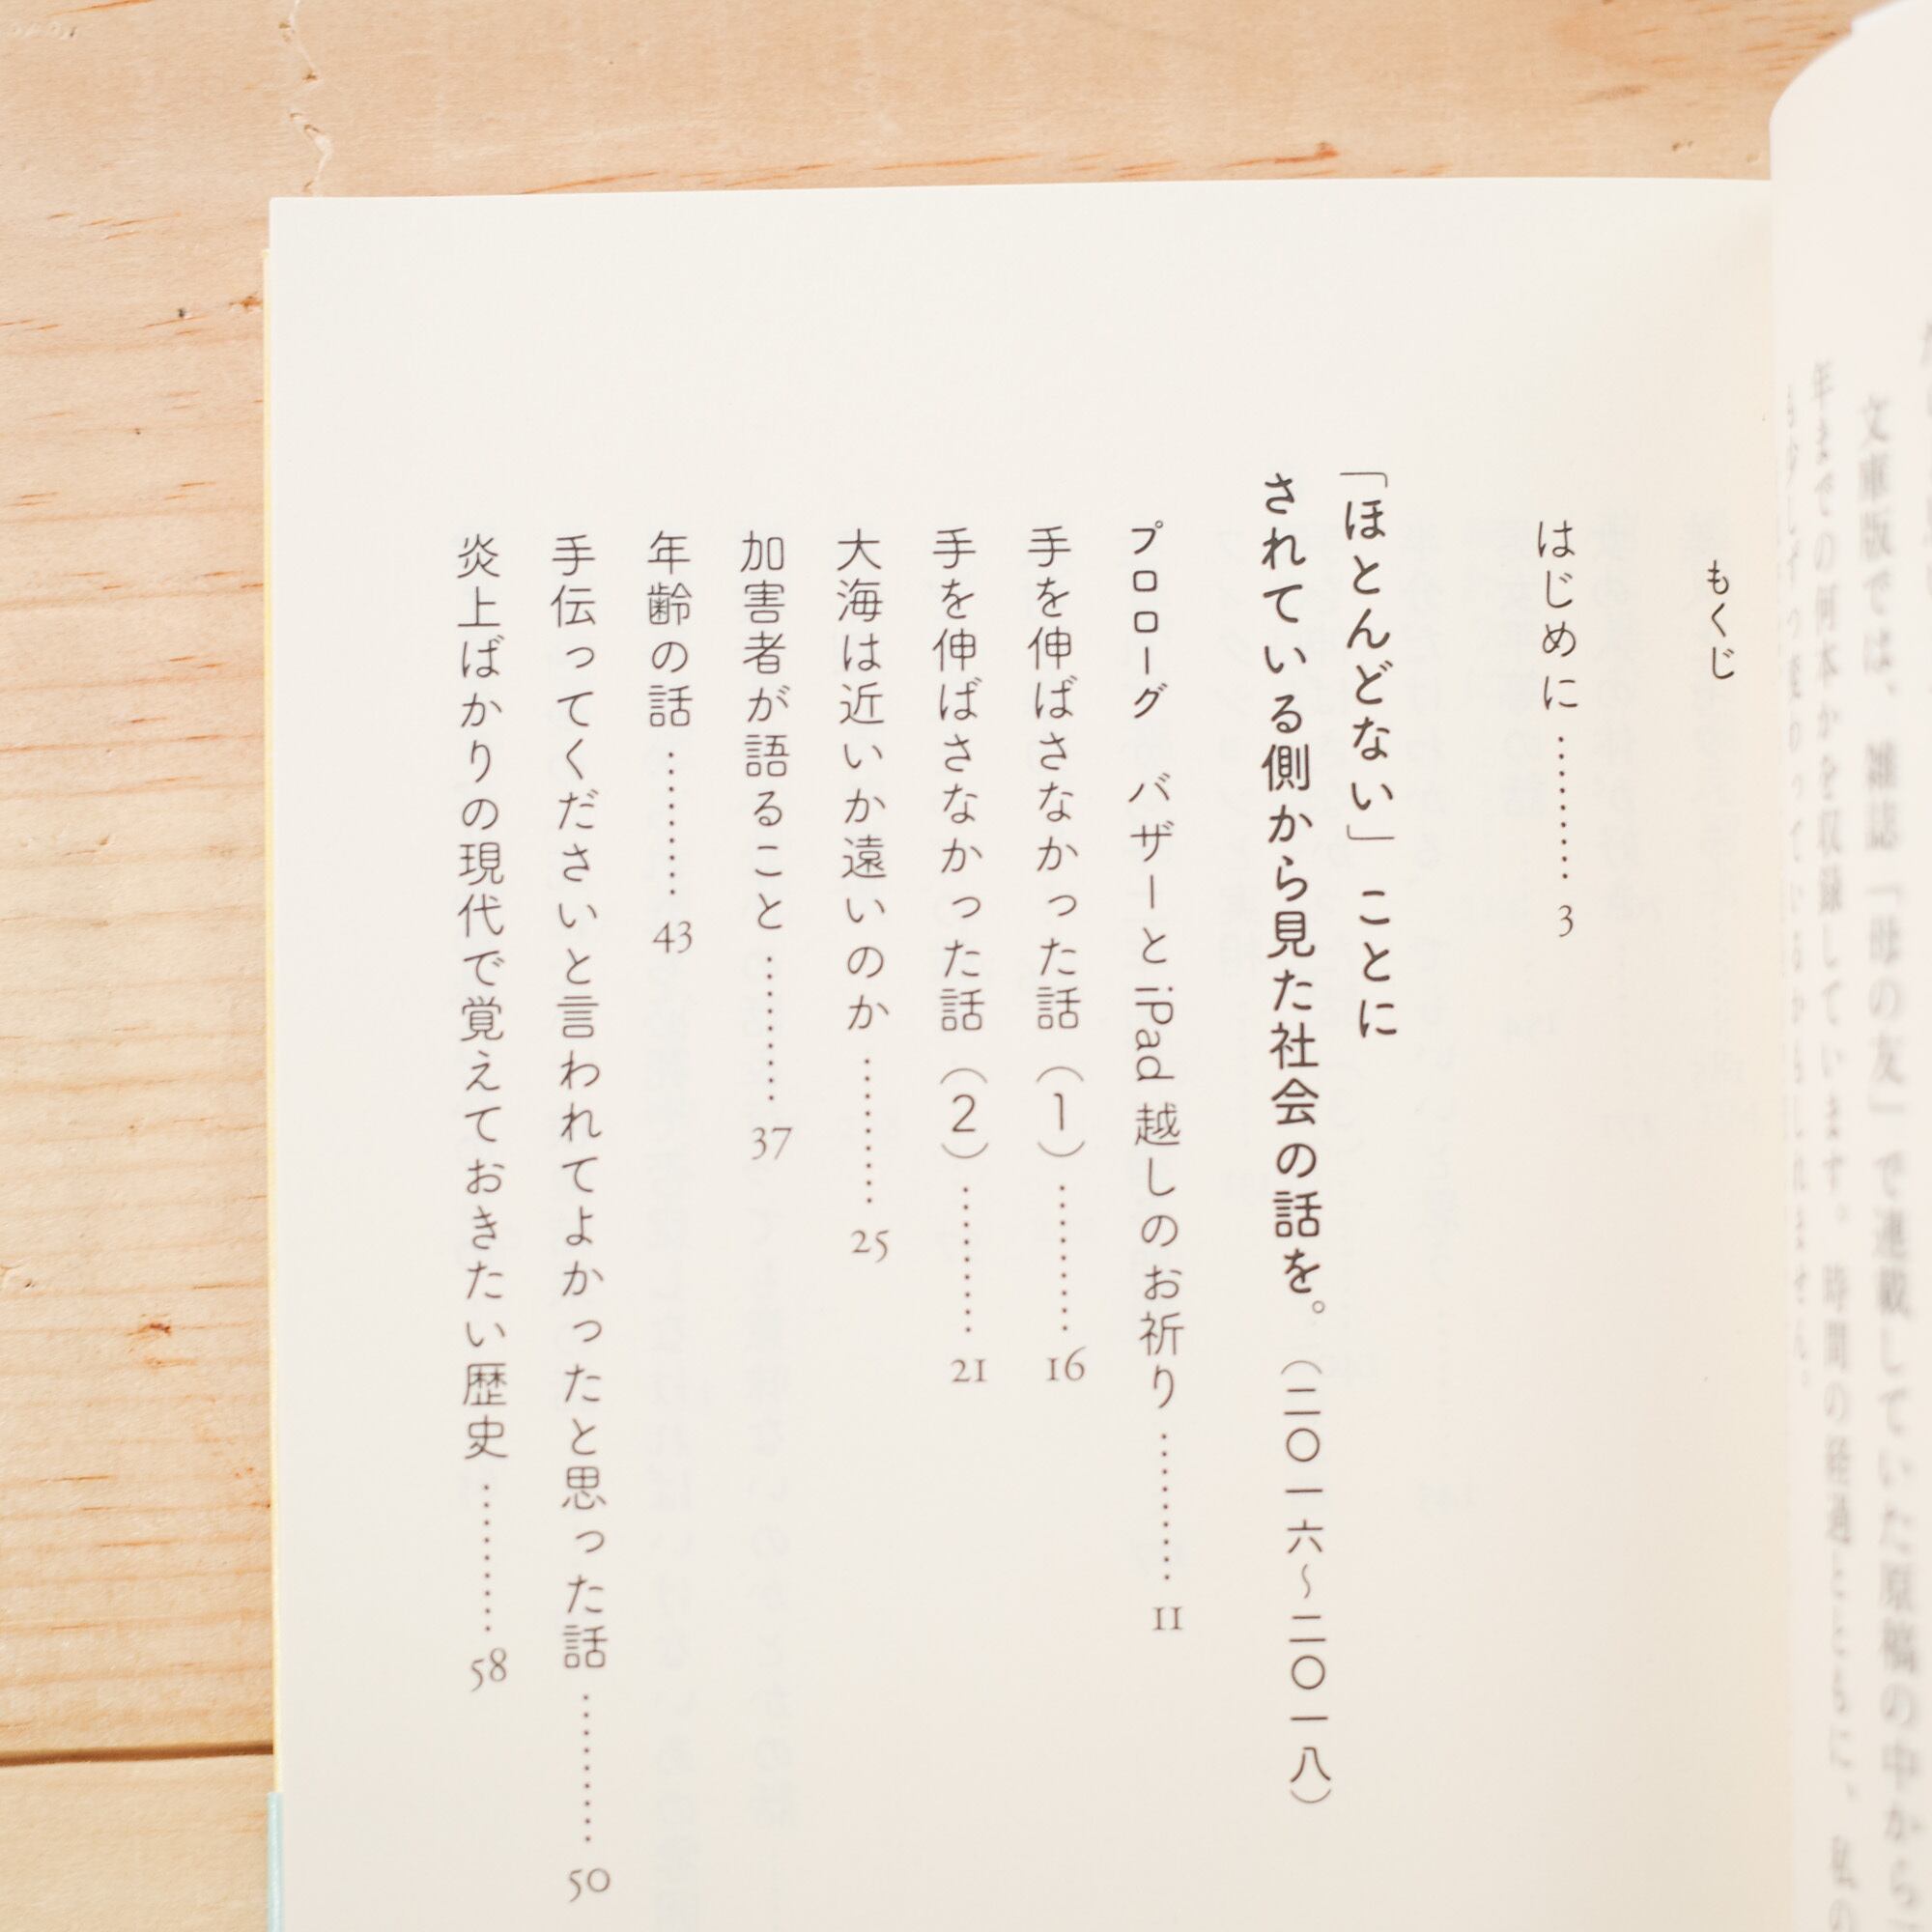 文庫版では、雑誌「母の友」で連載していた原稿の中から
年までの何本かを収録しています。時間の経過とともに、私の
もくじ
はじめに………3
「ほとんどない」ことに
されている側から見た社会の話を。（二〇一六〜二〇一八）
プロローグ　バザーとiPad越しのお祈り………11
手を伸ばさなかった話（1）………16
手を伸ばさなかった話（2）………21
大海は近いか遠いのか………25
加害者が語ること………37
年齢の話………43
手伝ってくださいと言われてよかったと思った話………50
炎上ばかりの現代で覚えておきたい歴史………58